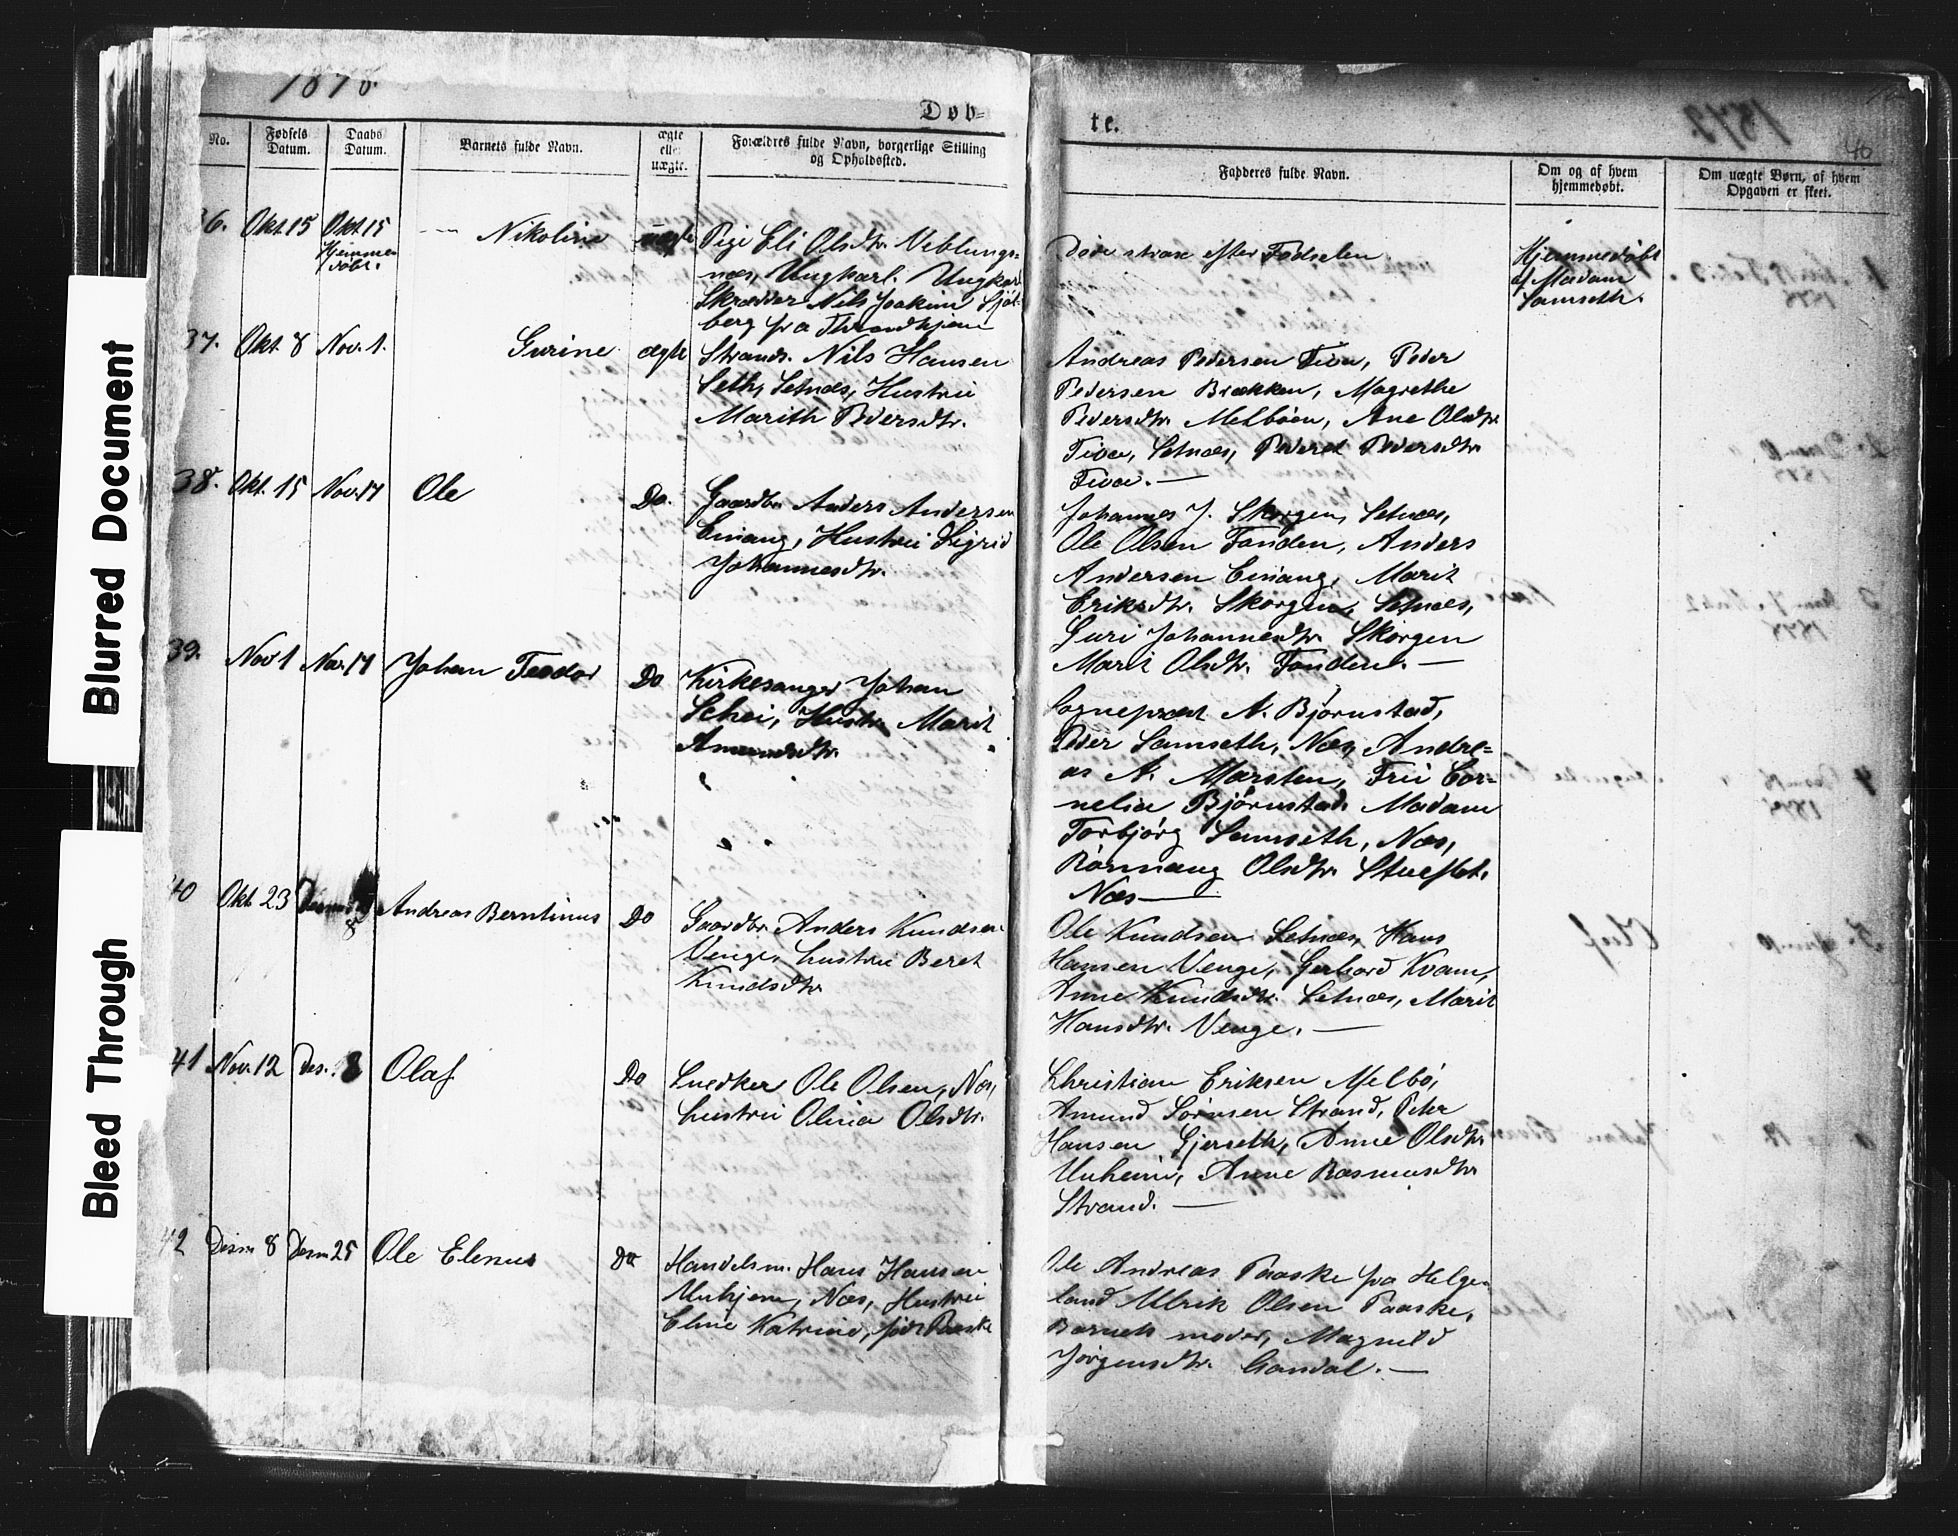 Blurred Document
Bleed Through
1878.
Døb=
te.
40
No.
Fødsels Datum.
Daabs Datum.
Barnets fulde Navn.
ægte eller uægte.
Forældres fulde Navn, borgerlige Stilling
og Opholdssted.
Fadderes fulde Navn.
Om og af hvem
hjemmedøbt.
Om uægte Børn, af hvem
Opgaven er skeet.
36. Okt 15 Okt 15 Nikoline uægte Pige Eli Olsdtr. Veblungs=
Hjemme
døbt.
næs, Ungkarl. Ungkar
Skrædder Nils Joakim Sjøl-
berg fra Throndhjem
Døde strax efter Fødselen
Hjemmedøbt
af Madam
Samseth.
37. Okt. 8 Nov. 1. Gurine ægte Strands. Nils Hansen
Seth, Setnæs, Hustru
Marith Pedersdtr.
Andreas Pedersen Tiva, Peder
Pedersen Brækken, Magrethe
Pedersdtr. Melbøen, Ane Olsdtr.
Setnæs, Pedersdtr.
38. Okt. 15 Nov. 17 Ole Do. Gaardbr. Anders Andersen
Einang, Hustru Sigrid
Johannesdtr.
Johannes J. Skorgen, Setnæs,
Ole Olsen Fonden, Anders
Andersen Einang, Marit
Eriksdtr. Skorgen, Setnæs,
Guri Johannesdtr. Skorgen
Marit Olsdtr. Fonden. —
39. Nov 1 Nov. 17 Johan Teodor Do Kirkesanger Johan
Schei, Hustr. Marit
Amundsdtr.
Sognepræst N. Bjørnstad,
Peder Samseth, Næs, Andre=
as N. Marsten, Fru Cor=
nelia Bjørnstad. Madam
Torbjørg Samseth, Næs,
Rønnaug Olsdtr.
Næs —
40 Okt. 23 Desm 8 Andreas Berntinus Do Gaardbr. Anders Knudsen
Venge, hustru Beret
Knudsdtr.
Ole Knudsen Setnæs, Hans
Hansen Venge, Gerhard Kvam,
Anne Knudsdtr. Setnæs, Marit
Hansdtr. Venge. —
41 Nov. 12 Des. 8 Olaf Do Snedker Ole Olsen, Næs,
hustru Olina Olsdtr.
Christian Eriksen Melbø,
Amund Sørensen Strand, Peter
Hansen Gjerseth, Anne Olsdtr.
Unheim, Anne Rasmusdtr.
Strand. —
42 Desm 8 Desm 25 Ole Elenus Do Handelsm. Hans Hansen
Unhjem, Næs, Hustru
Eline Katrine, født Paaske
Ole Andreas Paaske fra Helge-
land Ulrik Olsen Paaske,
Barnets moder, Magnild
Jørgensdtr. —